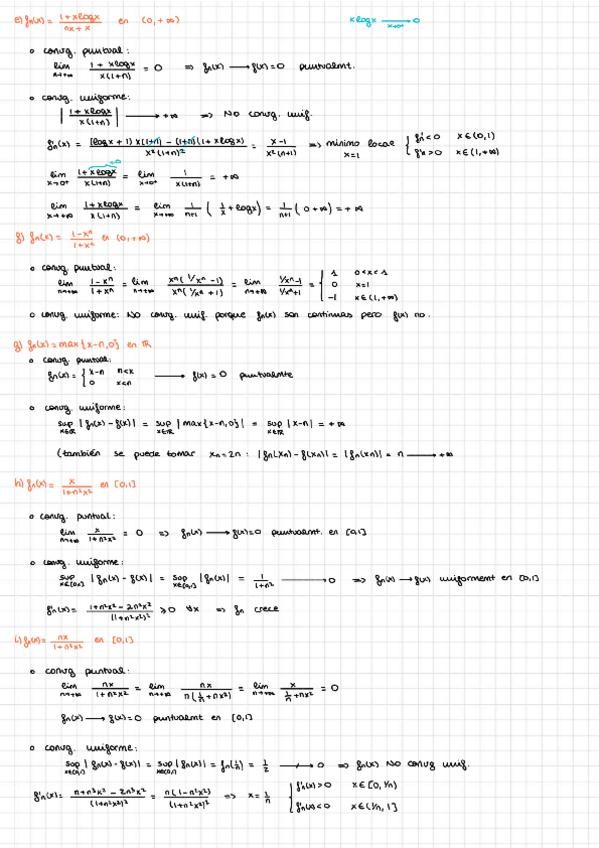 e) fn(x) = (1+xlogx)/(nx+x) en (0,+∞) xlogx ⟶ 0 x→0+
• convg. puntual:
lim n→+∞ (1+xlogx)/(x(1+n)) = 0 ⇒ fn(x) ⟶ f(x)=0 puntualmt.
• convg. uniforme:
|(1+xlogx)/(x(1+n))| ⟶ +∞ ⇒ NO convg. unif.
f'n(x) = ((logx+1)x(1+n) − (1+n)(1+xlogx))/(x²(1+n)²) = (x−1)/(x²(n+1)) ⇒ mínimo local x=1 { f'n<0 x∈(0,1) f'n>0 x∈(1,+∞)
lim x→0+ (1+xlogx)/(x(1+n)) = lim x→0+ 1/(x(1+n)) = +∞
lim x→+∞ (1+xlogx)/(x(1+n)) = lim x→+∞ 1/(n+1) (1/x + logx) = 1/(n+1) (0+∞) = +∞
f) fn(x) = (1−xⁿ)/(1+xⁿ) en (0,+∞)
• convg. puntual:
lim n→+∞ (1−xⁿ)/(1+xⁿ) = lim n→+∞ (xⁿ(1/xⁿ −1))/(xⁿ(1/xⁿ +1)) = lim n→+∞ (1/xⁿ−1)/(1/xⁿ+1) = { 1 0<x<1 0 x=1 −1 x∈(1,+∞)
• convg. uniforme: NO convg. unif. porque fn(x) son continuas pero f(x) no.
g) fn(x)=max{x−n,0} en ℝ
• convg. puntual:
fn(x) = { x−n n<x 0 x<n ⟶ f(x)=0 puntualmte
• convg. uniforme:
sup x∈ℝ |fn(x)−f(x)| = sup x∈ℝ |max{x−n,0}| = sup x∈ℝ |x−n| = +∞
(también se puede tomar xn=2n : |fn(xn)−f(xn)| = |fn(xn)| = n ⟶ +∞
h) fn(x)= x/(1+n²x²) en [0,1]
• convg. puntual:
lim n→+∞ x/(1+n²x²) = 0 ⇒ fn(x) ⟶ f(x)=0 puntualmt. en [0,1]
• convg. uniforme
sup x∈[0,1] |fn(x)−f(x)| = sup x∈[0,1] |fn(x)| = 1/(1+n²) ⟶ 0 ⇒ fn(x) ⟶ f(x) uniforment en [0,1]
f'n(x)= (1+n²x²−2n²x²)/(1+n²x²)² ≥0 ∀x ⇒ fn crece
i) fn(x)= nx/(1+n²x²) en [0,1]
• convg puntual:
lim n→+∞ nx/(1+n²x²) = lim n→+∞ nx/(n(1/n+nx²)) = lim n→+∞ x/(1/n+nx²) = 0
fn(x) ⟶ f(x)=0 puntualmt en [0,1]
• convg. uniforme:
sup x∈[0,1] |fn(x)−f(x)| = sup x∈[0,1] |fn(x)| = fn(1/n) = 1/2 ⟶ 0 ⇒ fn(x) NO convg unif.
f'n(x)= (n+n³x²−2n³x²)/(1+n²x²)² = (n(1−n²x²))/(1+n²x²)² ⇒ x=1/n { f'n(x)>0 x∈[0,1/n) f'n(x)<0 x∈(1/n,1]